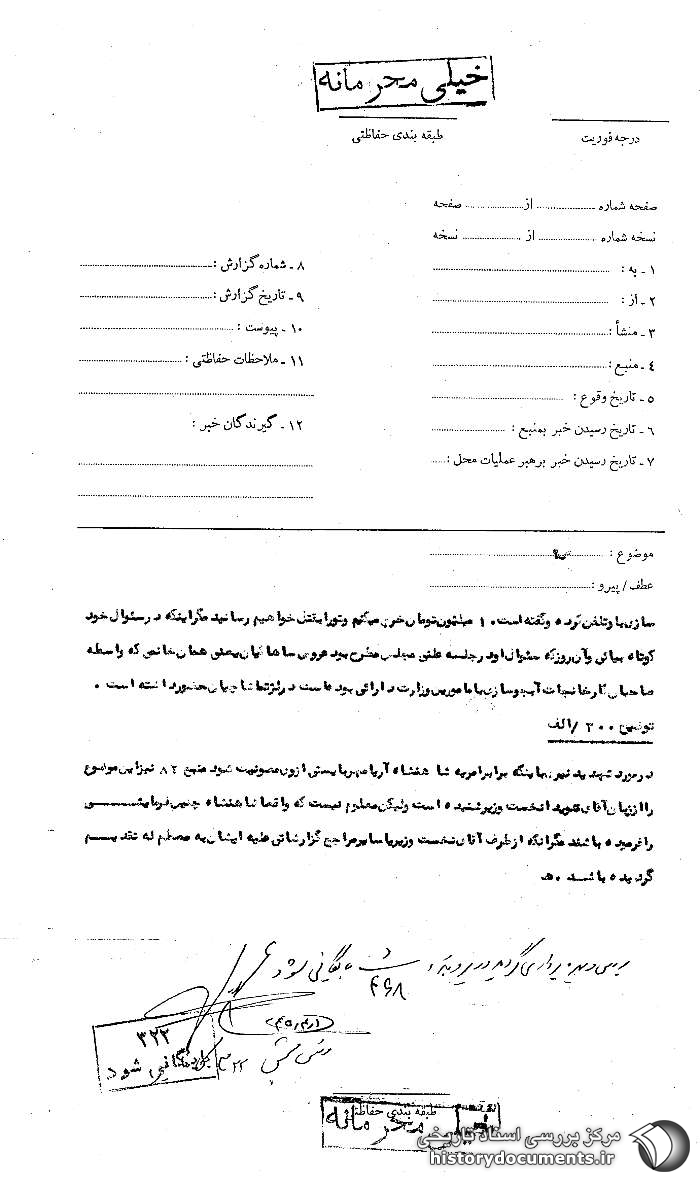 خیلی محرمانه
طبقه بندی حفاظتی
درجه فوریت
صفحه شماره ........ از ........ صفحه
نسخه شماره ........ از ........ نسخه
۱ ـ به :
۲ ـ از :
۳ ـ منشأ :
۴ ـ منبع :
۵ ـ تاریخ وقوع :
۶ ـ تاریخ رسیدن خبر بمنبع :
۷ ـ تاریخ رسیدن خبر برهبر عملیات محل :
۸ ـ شماره گزارش :
۹ ـ تاریخ گزارش :
۱۰ ـ پیوست :
۱۱ ـ ملاحظات حفاظتی :
۱۲ ـ گیرندگان خبر :
موضوع :
عطف / پیرو :
سازی با و تلفن کرده و گفته است ۱۰ میلیون تومان خرج میکنم و ترا بقتل خواهیم رسانید مگر اینکه در سئوال خود
کوتاه بیائی و آن روز که سئوال او در جلسه علنی مجلس مطرح بود عروس ساهاتیان یعنی همان خانمی که واسطه
صاحبان کارخانجات آبجوسازی با مامورین وزارت دارائی بوده است در لژ تماشاچیان حضور داشته است .
توضیح ۳۰۰ /الف
در مورد شهید نیری اینکه برابر امریه شاهنشاه آریامهر بایستی از وی مصونیت شود منبع ۸۲ نیز این موضوع
را از زبان آقای هویدا نخست وزیر شنیده است ولیکن معلوم نیست که واقعا شاهنشاه چنین فرمایشی
را فرموده باشند مگر آنکه از طرف آقای نخست وزیر یا سایر مراجع گزارشاتی علیه ایشان به معظم له تقدیم
گردیده باشد . هـ
بهره برداری گردید در پرونده ۴۶۸ بایگانی شود
۳۲۲
بایگانی شود
طبقه بندی حفاظتی
خیلی محرمانه
مرکز بررسی اسناد تاریخی
historydocuments.ir